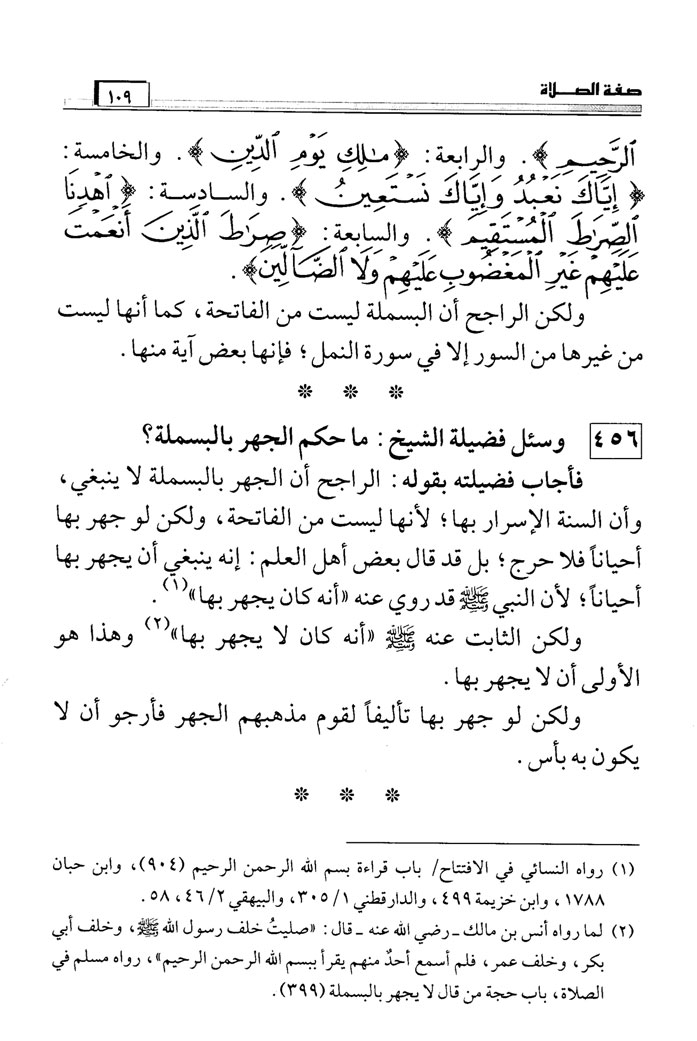 صفة الصلاة
١٠٩
الرَّحِيمِ ﴾. والرابعة: ﴿ مَٰلِكِ يَوْمِ الدِّينِ ﴾. والخامسة:
﴿ إِيَّاكَ نَعْبُدُ وَإِيَّاكَ نَسْتَعِينُ ﴾. والسادسة: ﴿ ٱهْدِنَا
ٱلصِّرَٰطَ ٱلْمُسْتَقِيمَ ﴾. والسابعة: ﴿ صِرَٰطَ ٱلَّذِينَ أَنْعَمْتَ
عَلَيْهِمْ غَيْرِ ٱلْمَغْضُوبِ عَلَيْهِمْ وَلَا ٱلضَّآلِّينَ ﴾.
ولكن الراجح أن البسملة ليست من الفاتحة، كما أنها ليست
من غيرها من السور إلا في سورة النمل؛ فإنها بعض آية منها.
* * *
٤٥٦ وسئل فضيلة الشيخ: ما حكم الجهر بالبسملة؟
فأجاب فضيلته بقوله: الراجح أن الجهر بالبسملة لا ينبغي،
وأن السنة الإسرار بها؛ لأنها ليست من الفاتحة، ولكن لو جهر بها
أحياناً فلا حرج؛ بل قد قال بعض أهل العلم: إنه ينبغي أن يجهر بها
أحياناً؛ لأن النبي ﷺ قد روي عنه «أنه كان يجهر بها»(١).
ولكن الثابت عنه ﷺ «أنه كان لا يجهر بها»(٢) وهذا هو
الأولى أن لا يجهر بها.
ولكن لو جهر بها تأليفاً لقوم مذهبهم الجهر فأرجو أن لا
يكون به بأس.
* * *
(١) رواه النسائي في الافتتاح/ باب قراءة بسم الله الرحمن الرحيم (٩٠٤)، وابن حبان
١٧٨٨، وابن خزيمة ٤٩٩، والدارقطني ١/ ٣٠٥، والبيهقي ٢/ ٤٦، ٥٨.
(٢) لما رواه أنس بن مالك ـ رضي الله عنه ـ قال: «صليتُ خلف رسول الله ﷺ، وخلف أبي
بكر، وخلف عمر، فلم أسمع أحدٌ منهم يقرأ ببسم الله الرحمن الرحيم»، رواه مسلم في
الصلاة، باب حجة من قال لا يجهر بالبسملة (٣٩٩).